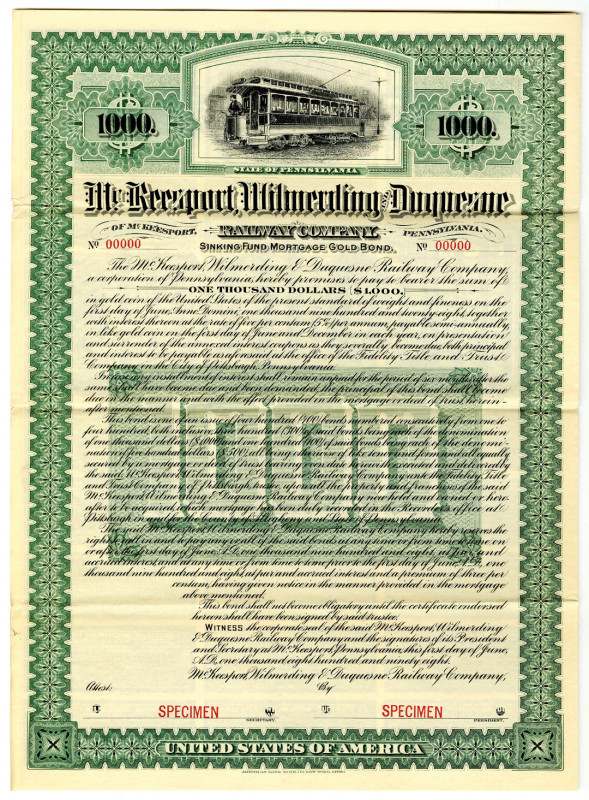 1000. 1000.
STATE OF PENNSYLVANIA
McKeesport, Wilmerding and Duquesne
OF McKEESPORT, RAILWAY COMPANY, PENNSYLVANIA.
No 00000 SINKING FUND MORTGAGE GOLD BOND. No 00000
The McKeesport, Wilmerding & Duquesne Railway Company,
a corporation of Pennsylvania, hereby promises to pay to bearer the sum of
ONE THOUSAND DOLLARS ($1,000,)
in gold coin of the United States of the present standard of weight and fineness on the
first day of June, Anno Domini, one thousand nine hundred and twenty eight, together
with interest hereon at the rate of five per centum (5%) per annum, payable semi-annually,
in like gold coin on the first day of June and December in each year, on presentation
and surrender of the annexed interest coupons as they severally become due, both principal
and interest to be payable as aforesaid at the office of the Fidelity Title and Trust
Company in the City of Pittsburgh, Pennsylvania.
In case any instalment of interest shall remain unpaid for the period of six months after the
same shall have become due and been demanded, the principal of this bond shall become
due in the manner and with the effect provided in the mortgage or deed of trust herein-
after mentioned.
This bond is one of an issue of four hundred (400) bonds numbered consecutively from one to
four hundred, both inclusive, three hundred (300) of said bonds being each of the denomination
of one thousand dollars ($1,000) and one hundred (100) of said bonds being each of the denomi-
nation of five hundred dollars ($500), all being otherwise of like tenor and form and all equally
secured by a mortgage or deed of trust, bearing even date herewith executed and delivered by
the said, McKeesport, Wilmerding & Duquesne Railway Company unto the Fidelity Title
and Trust Company of Pittsburgh, trustee, upon all the property and franchises of the said
McKeesport, Wilmerding & Duquesne Railway Company now held and owned or here-
after to be acquired, which mortgage has been duly recorded in the Recorder's office at
Pittsburgh in and for the County of Allegheny and State of Pennsylvania.
The said McKeesport, Wilmerding & Duquesne Railway Company hereby reserves the
right to call in and to pay any or all of the said bonds at any time or from time to time on
or after the first day of June, A.D., one thousand nine hundred and eight, at par, and
accrued interest, and at any time or from time to time prior to the first day of June, A.D., one
thousand nine hundred and eight, at par and accrued interest and a premium of three per
centum, having given notice in the manner provided in the mortgage
above mentioned.
This bond shall not become obligatory until the certificate endorsed
hereon shall have been signed by said trustee.
WITNESS the corporate seal of the said McKeesport, Wilmerding
& Duquesne Railway Company and the signatures of its President
and Secretary at McKeesport, Pennsylvania, this first day of June,
A.D., one thousand eight hundred and ninety eight.
McKeesport, Wilmerding & Duquesne Railway Company,
Attest: By
SPECIMEN SPECIMEN
SECRETARY. PRESIDENT.
UNITED STATES OF AMERICA